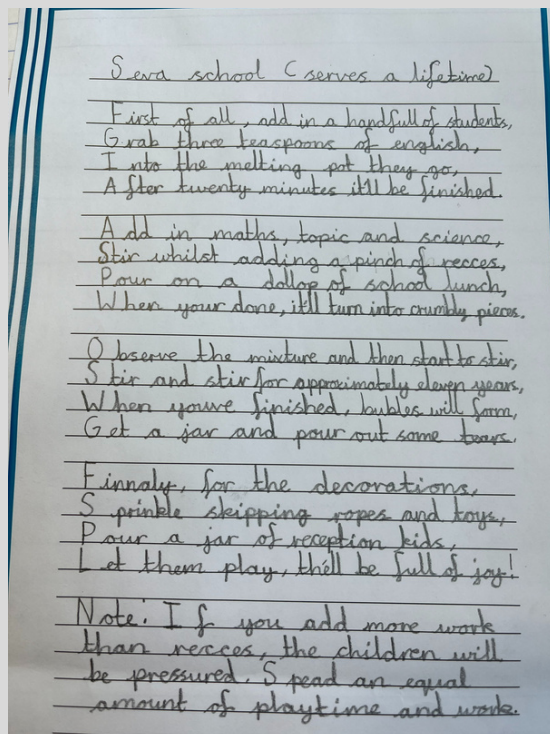 Seva school (serves a lifetime)
First of all, add in a handfull of students,
Grab three teaspoons of english,
Into the melting pot they go,
After twenty minutes it'll be finished.
Add in maths, topic and science,
Stir whilst adding a pinch of recces,
Pour on a dollop of school lunch,
When your done, it'll turn into crumbly pieces.
Observe the mixture and then start to stir,
Stir and stir for approximately eleven years,
When youve finished, bubles will form,
Get a jar and pour out some tears.
Finnaly, for the decorations,
Sprinkle skipping ropes and toys,
Pour a jar of reception kids,
Let them play, the'll be full of joy!
Note: If you add more work
than recces, the children will
be pressured. Spead an equal
amount of playtime and work.